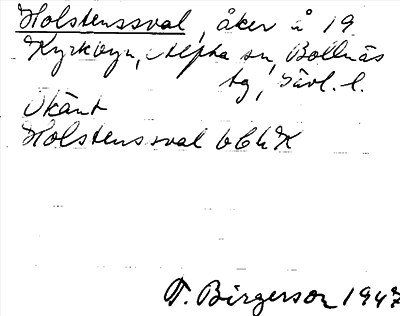 Holstenssval, åker å 19
Kyrkbyn, Alfta sn, Bollnäs
tg, Gävl. l.
Okänt
Holstenssval bbkK
T. Birgerson 1947